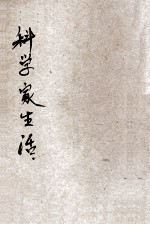 科学家生活